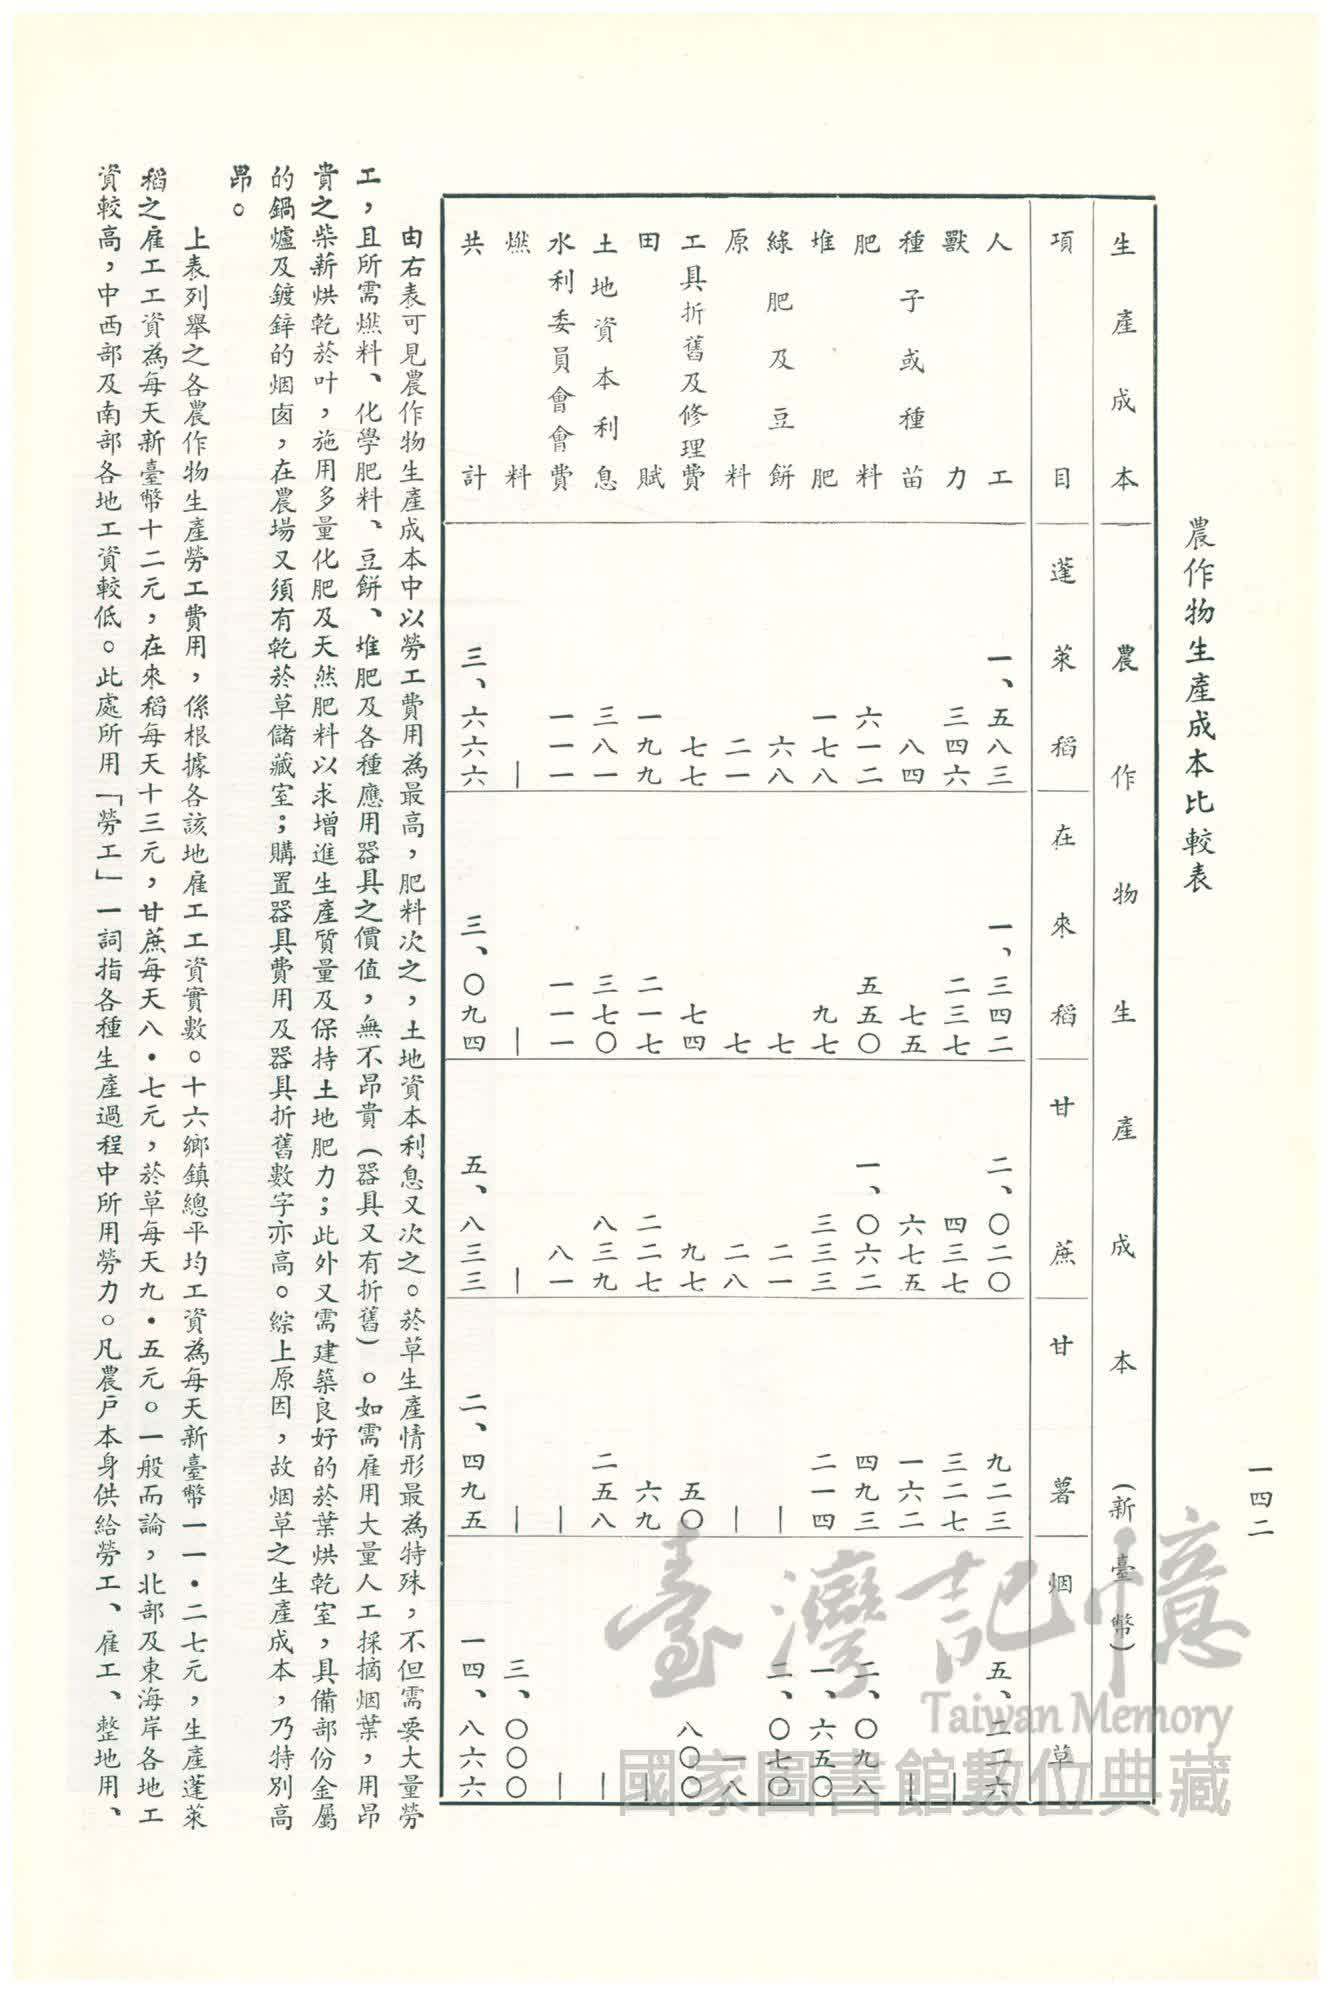 一四二
農作物生產成本比較表
生產成本 農作物生產成本(新臺幣)
項目 蓬萊稻 在來稻 甘蔗 甘薯 烟草
人工 一、五八三 一、三四二 二、〇二〇 九二三 五、二二六
獸力 三四六 二三七 四三七 三二七 —
種子或種苗 八四 七五 六七五 一六二 —
肥料 六一二 五五〇 一、〇六二 四九三 二、〇九八
堆肥 一七八 九七 三三三 二一四 一、六五〇
綠肥及豆餅 六八 七 二一 — 二、〇七〇
原料 二一 七 二八 — 一八
工具折舊及修理費 七七 七四 九七 五〇 八〇〇
田賦 一九九 二一七 二二七 六九 —
土地資本利息 三八一 三七〇 八三九 二五八 —
水利委員會會費 一一一 一一一 八一 — —
燃料 — — — — 三、〇〇〇
共計 三、六六六 三、〇九四 五、八三三 二、四九五 一四、八六六
由右表可見農作物生產成本中以勞工費用為最高，肥料次之，土地資本利息又次之。菸草生產情形最為特殊，不但需要大量勞
工，且所需燃料、化學肥料、豆餅、堆肥及各種應用器具之價值，無不昂貴（器具又有折舊）。如需雇用大量人工採摘烟葉，用昂
貴之柴薪烘乾菸叶，施用多量化肥及天然肥料以求增進生產質量及保持土地肥力；此外又需建築良好的菸葉烘乾室，具備部份金屬
的鍋爐及鍍鋅的烟囱，在農場又須有乾菸草儲藏室；購置器具費用及器具折舊數字亦高。綜上原因，故烟草之生產成本，乃特別高
昂。
上表列舉之各農作物生產勞工費用，係根據各該地雇工工資實數。十六鄉鎮總平均工資為每天新臺幣一一・二七元，生產蓬萊
稻之雇工工資為每天新臺幣十二元，在來稻每天十三元，甘蔗每天八・七元，菸草每天九・五元。一般而論，北部及東海岸各地工
資較高，中西部及南部各地工資較低。此處所用「勞工」一詞指各種生產過程中所用勞力。凡農戶本身供給勞工、雇工、整地用、
臺灣記憶
Taiwan Memory
國家圖書館數位典藏